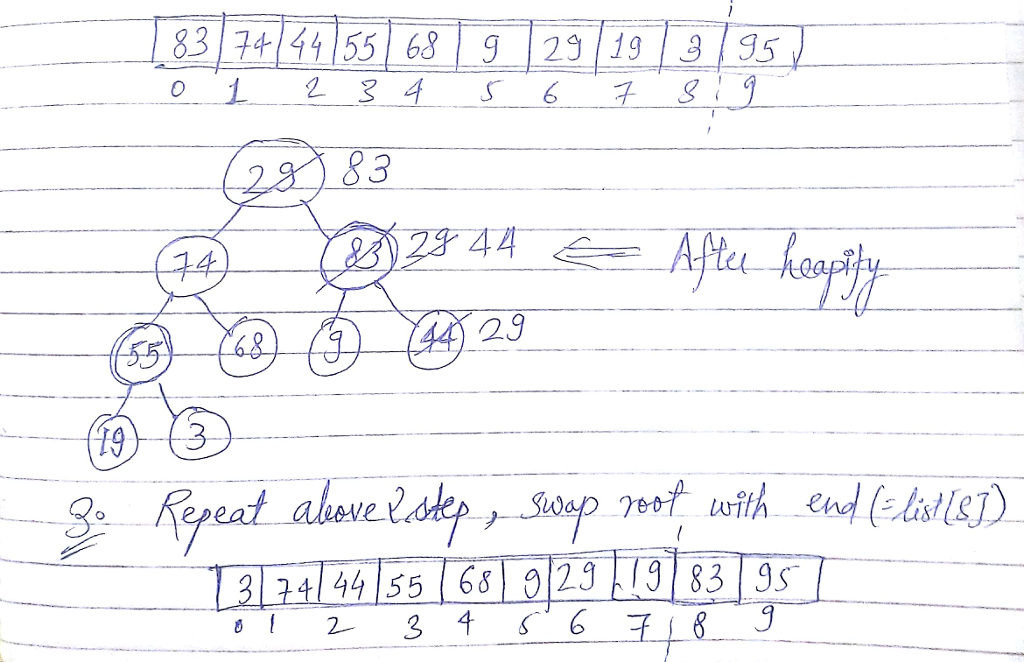 83 74 44 55 68 9 29 19 3 95
0 1 2 3 4 5 6 7 8 9
29 83
74 83 29 44 ⇐ After heapify
55 68 9 44 29
19 3
3. Repeat above 2 step, swap root with end (=list[8])
3 74 44 55 68 9 29 19 83 95
0 1 2 3 4 5 6 7 8 9